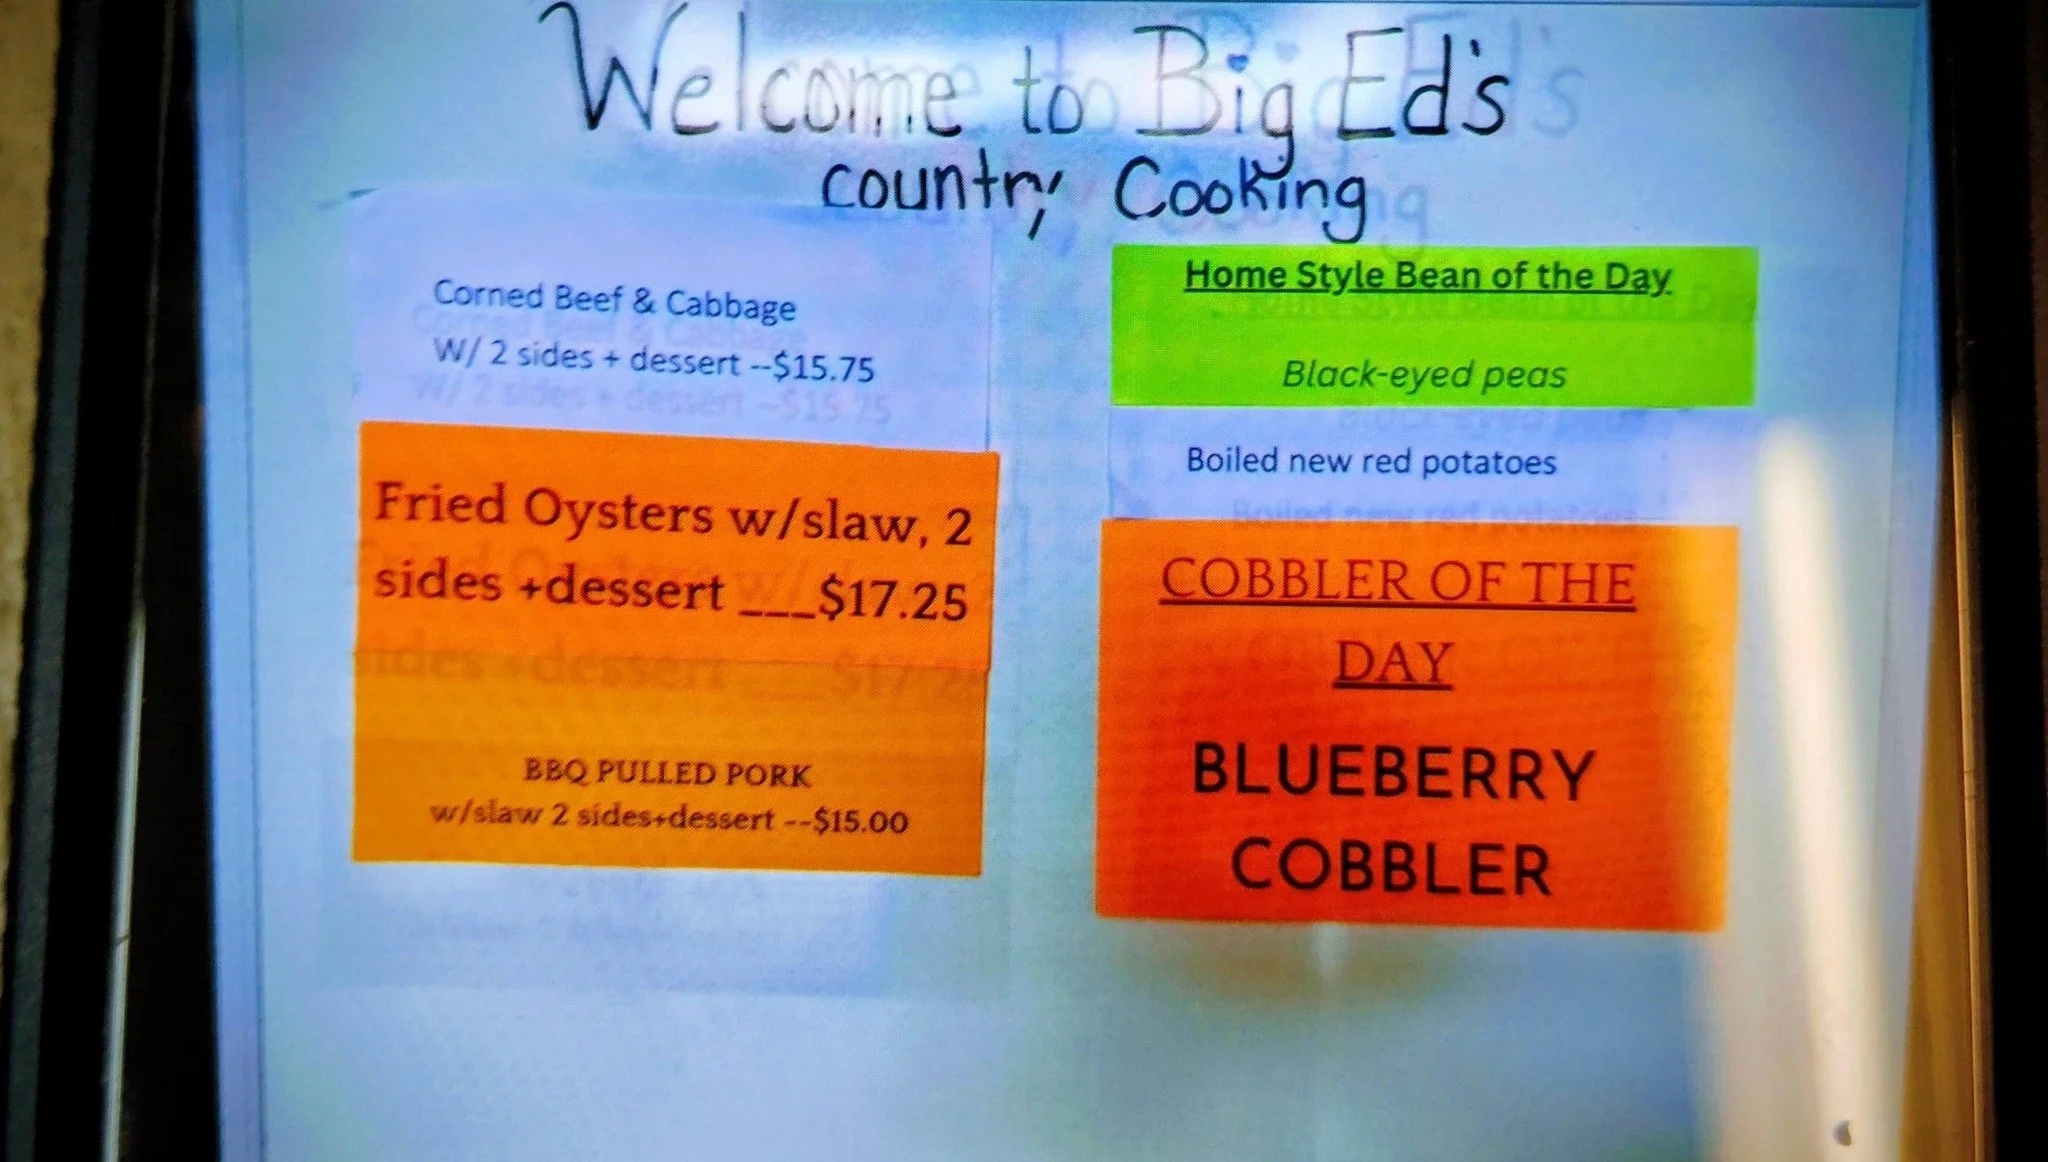 Welcome to Big Ed's
country Cooking
Corned Beef & Cabbage
W/ 2 sides + dessert --$15.75
Fried Oysters w/slaw, 2
sides +dessert ___$17.25
BBQ PULLED PORK
w/slaw 2 sides+dessert --$15.00
Home Style Bean of the Day
Black-eyed peas
Boiled new red potatoes
COBBLER OF THE
DAY
BLUEBERRY
COBBLER